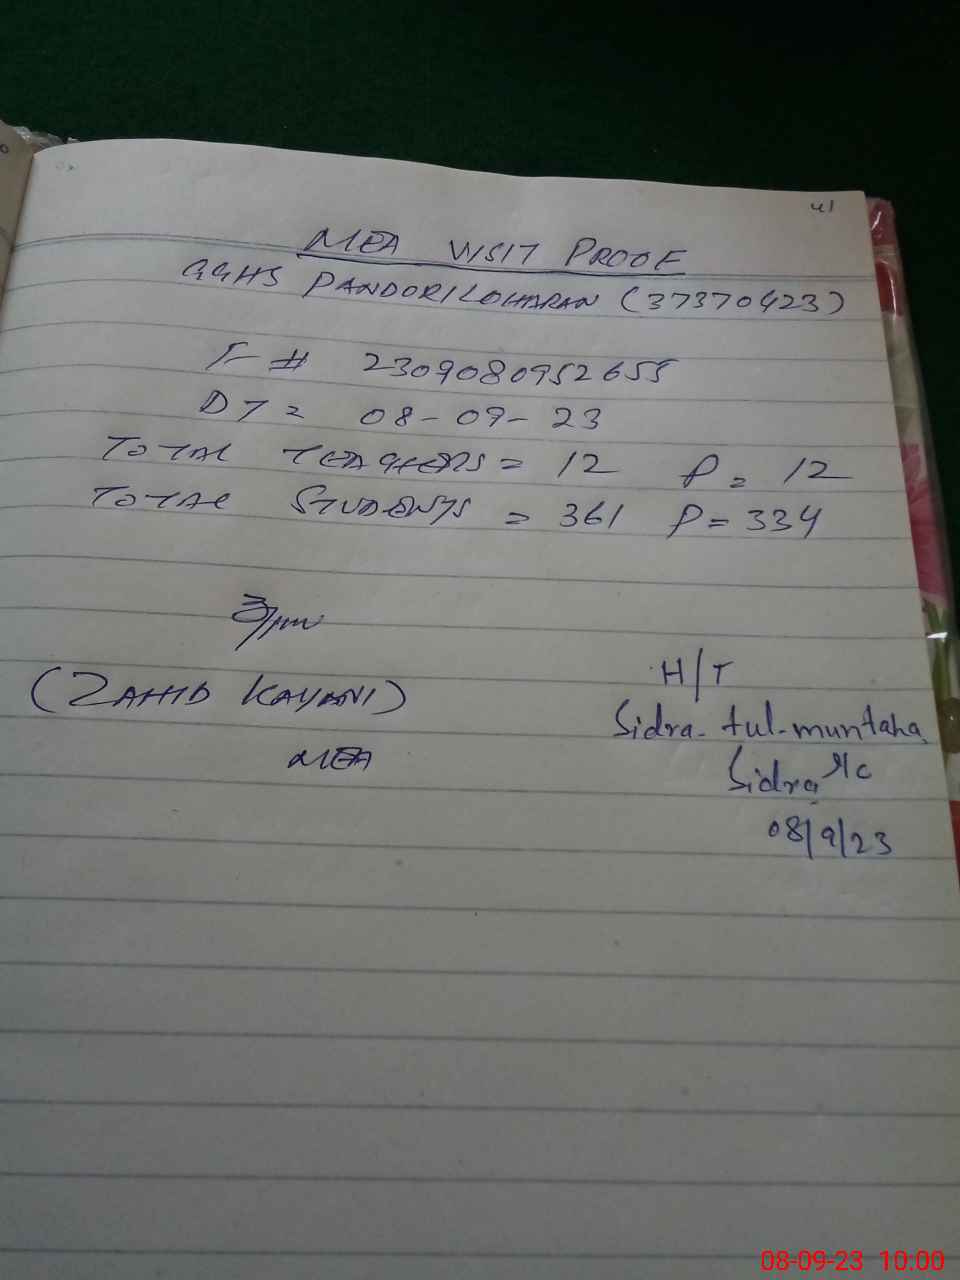 41
MEA VISIT PROOF
GGHS PANDORILOHARAN (37370423)
F # 2309080952655
DT = 08-09-23
TOTAL TEACHERS = 12 P = 12
TOTAL STUDENTS = 361 P = 334
(ZAHID KAYANI)
MEA
H/T
Sidra-tul-muntaha
Sidra
08/9/23
08-09-23 10.00